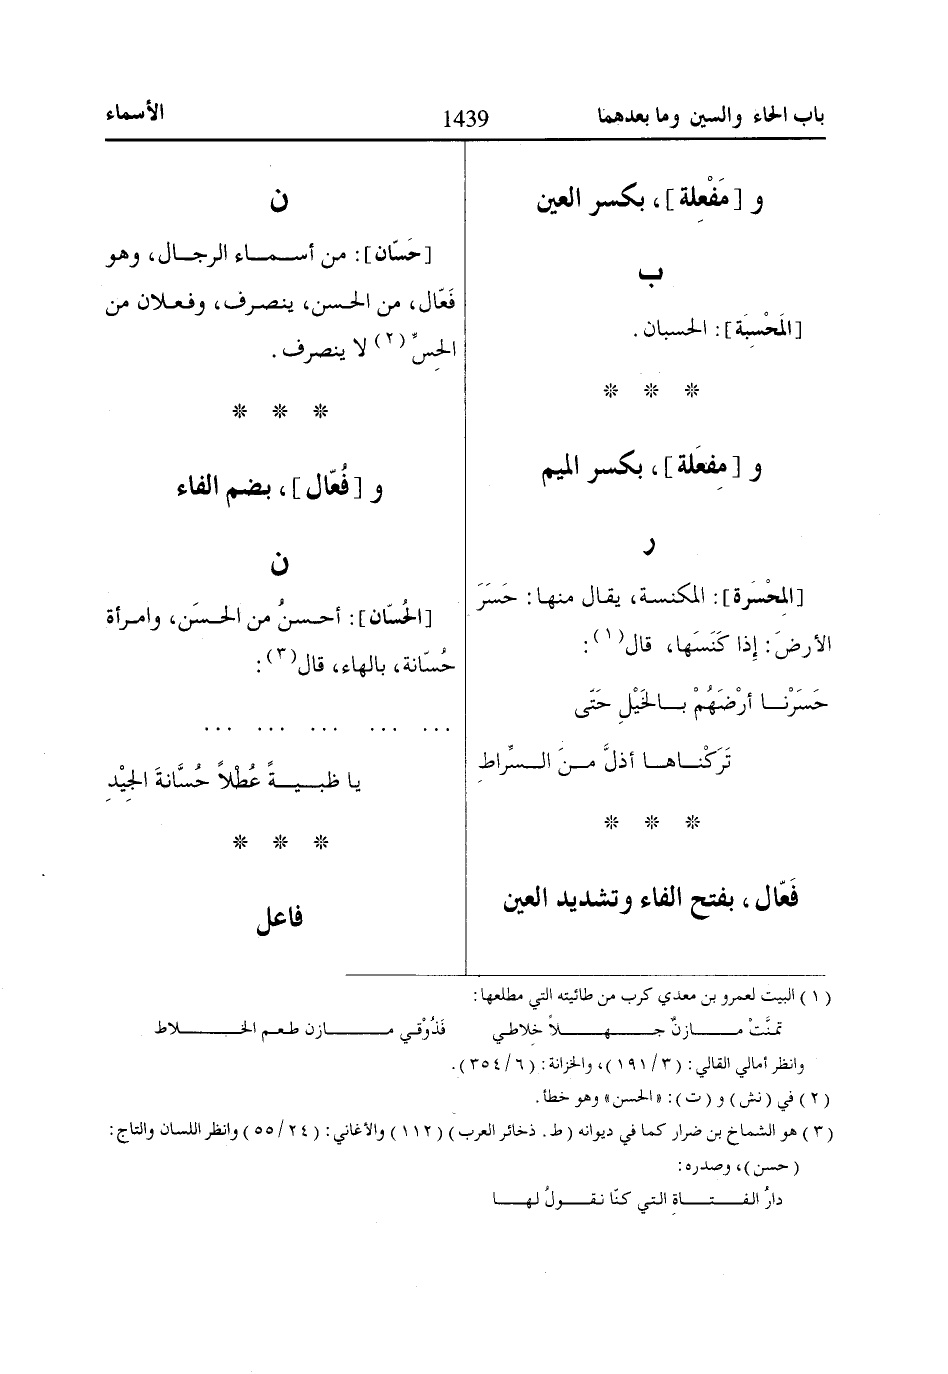 باب الحاء والسين وما بعدهما
1439
الأسماء
و [مَفْعِلة]، بكسر العين
ب
[المَحْسِبَة]: الحسبان.
* * *
و [مِفعَلة]، بكسر الميم
ر
[المِحْسَرة]: المكنسة، يقال منها: حَسَرَ
الأرضَ: إذا كَنَسَها، قال(١):
حَسَرْنـا أرْضَهُمْ بـالخَيْلِ حَتّى
تَرَكْنـاهـا أذلَّ مـنَ الـسِّراطِ
* * *
فَعّال، بفتح الفاء وتشديد العين
ن
[حَسّان]: من أسماء الرجال، وهو
فَعّال، من الحسن، ينصرف، وفعلان من
الحِسِّ(٢) لا ينصرف.
* * *
و [فُعّال]، بضم الفاء
ن
[الحُسّان]: أحسنُ من الحسَن، وامرأة
حُسّانة، بالهاء، قال(٣):
... ... ... ... ...
يا ظبيةً عُطْلاً حُسَّانةَ الجِيْدِ
* * *
فاعل
(١) البيت لعمرو بن معدي كرب من طائيته التي مطلعها:
تمنَّتْ مـازنٌ جـهـلاً خلاطي فَذُوْقي مـازن طعم الخـلاط
وانظر أمالي القالي: (٣/ ١٩١)، والخزانة: (٦/ ٣٥٤).
(٢) في (نش) و (ت): «الحسن» وهو خطأ.
(٣) هو الشماخ بن ضرار كما في ديوانه (ط. ذخائر العرب) (١١٢) والأغاني: (٢٤/ ٥٥) وانظر اللسان والتاج:
(حسن)، وصدره:
دارُ الفـتـاةِ التي كنّا نقـولُ لهـا